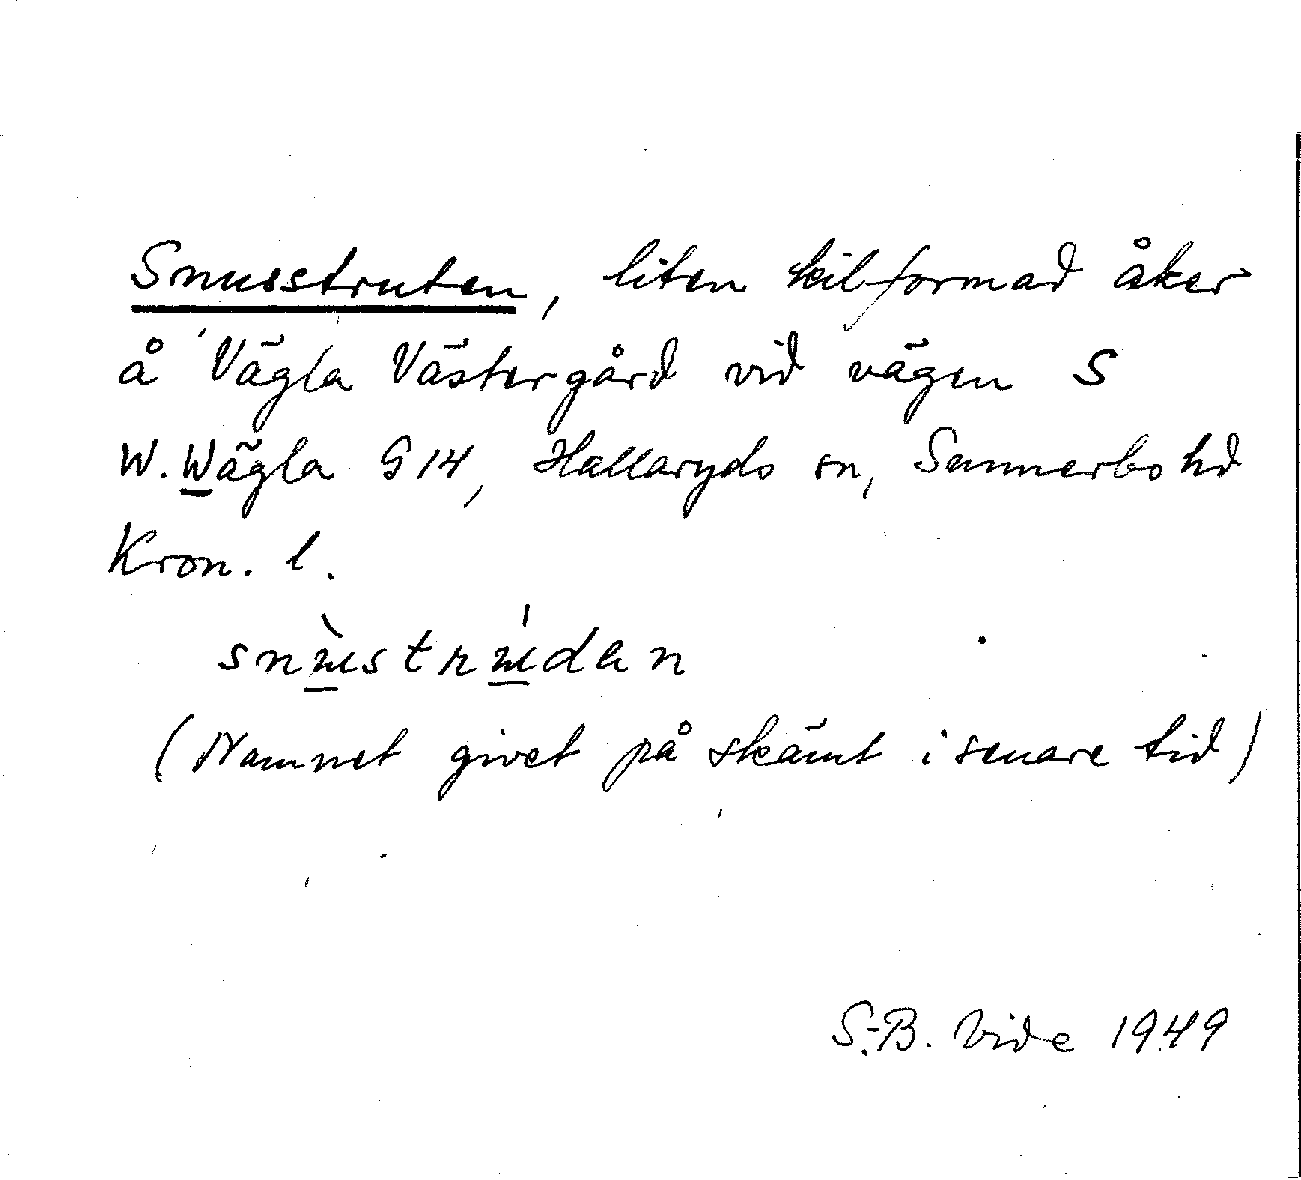 Snusstruten, liten kilformad åker
å Vägla Västergård vid vägen S
W. Wägla G 14, Hallaryds sn, Sunnerbo hd
Kron. l.
(Namnet givet på skämt i senare tid)
S.-B. Vide 1949